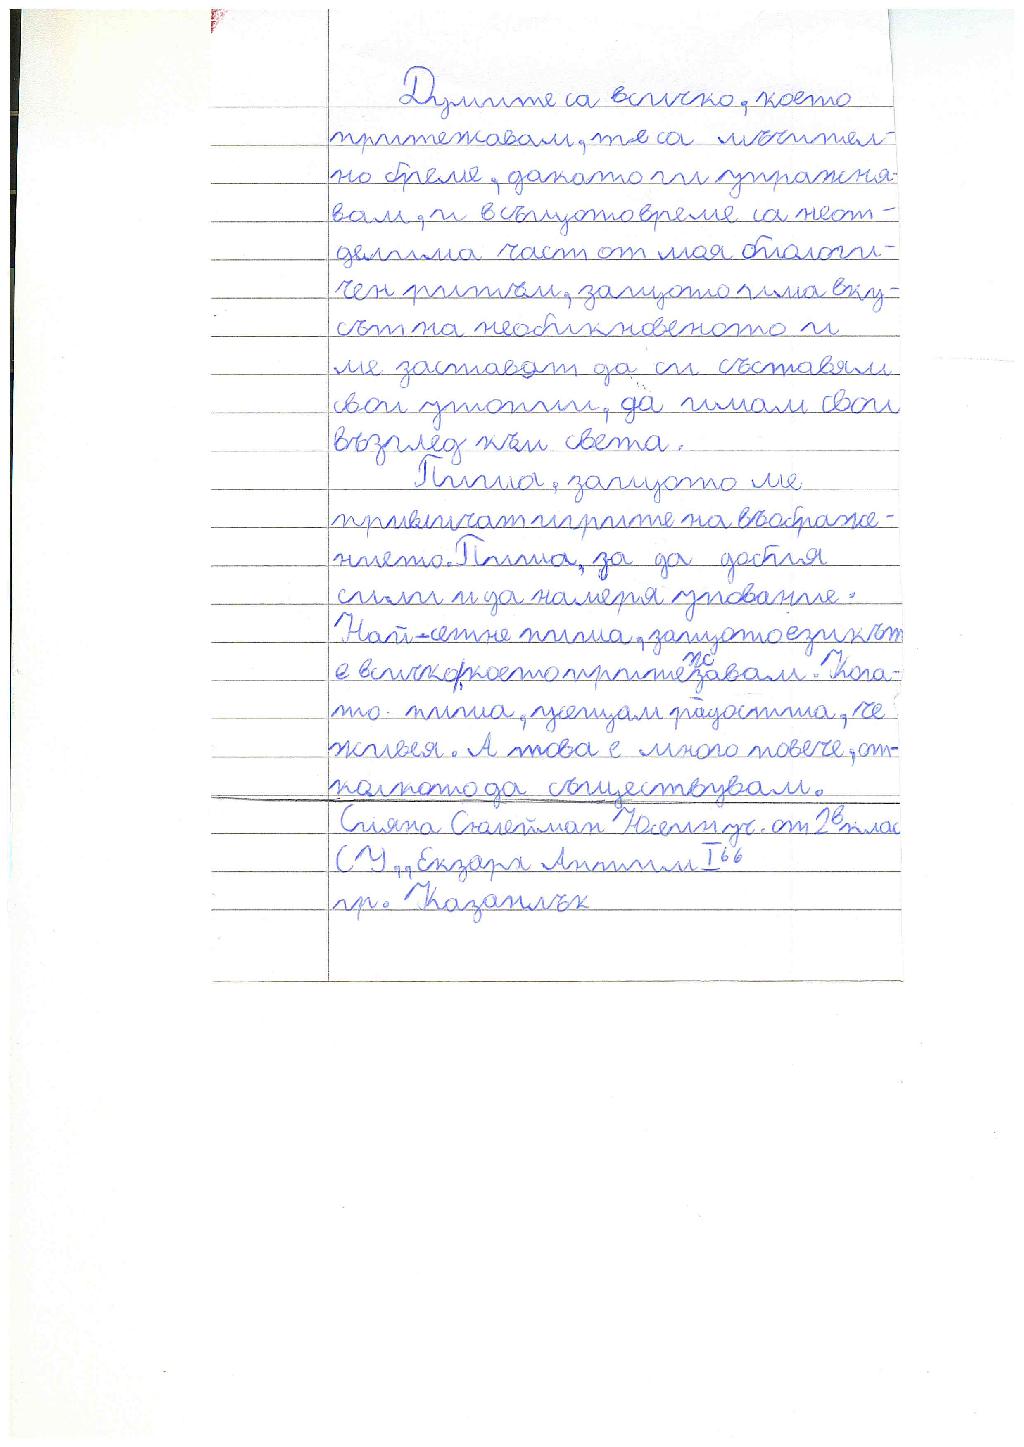 Думите са всичко, което
притежавам, те са мъчител-
но бреме, докато ги упражня-
вам, и в същото време са неот-
делима част от моя биологи-
чен ритъм, защото има вку-
сът на необикновеното и
ме заставят да си съставям
свои утопии, да имам свои
възглед към света.
Пиша, защото ме
привличат игрите на въображе-
нието. Пиша, за да добия
сили и да намеря упование.
Най-сетне пиша, защото езикът
е всичко, което притежавам. Кога-
то пиша, усещам радостта, че
живея. А това е много повече, от-
колкото да съществувам.
Сияна Сюлейман Юсеин уч. от 2в клас
СУ „Екзарх Антим I“
гр. Казанлък